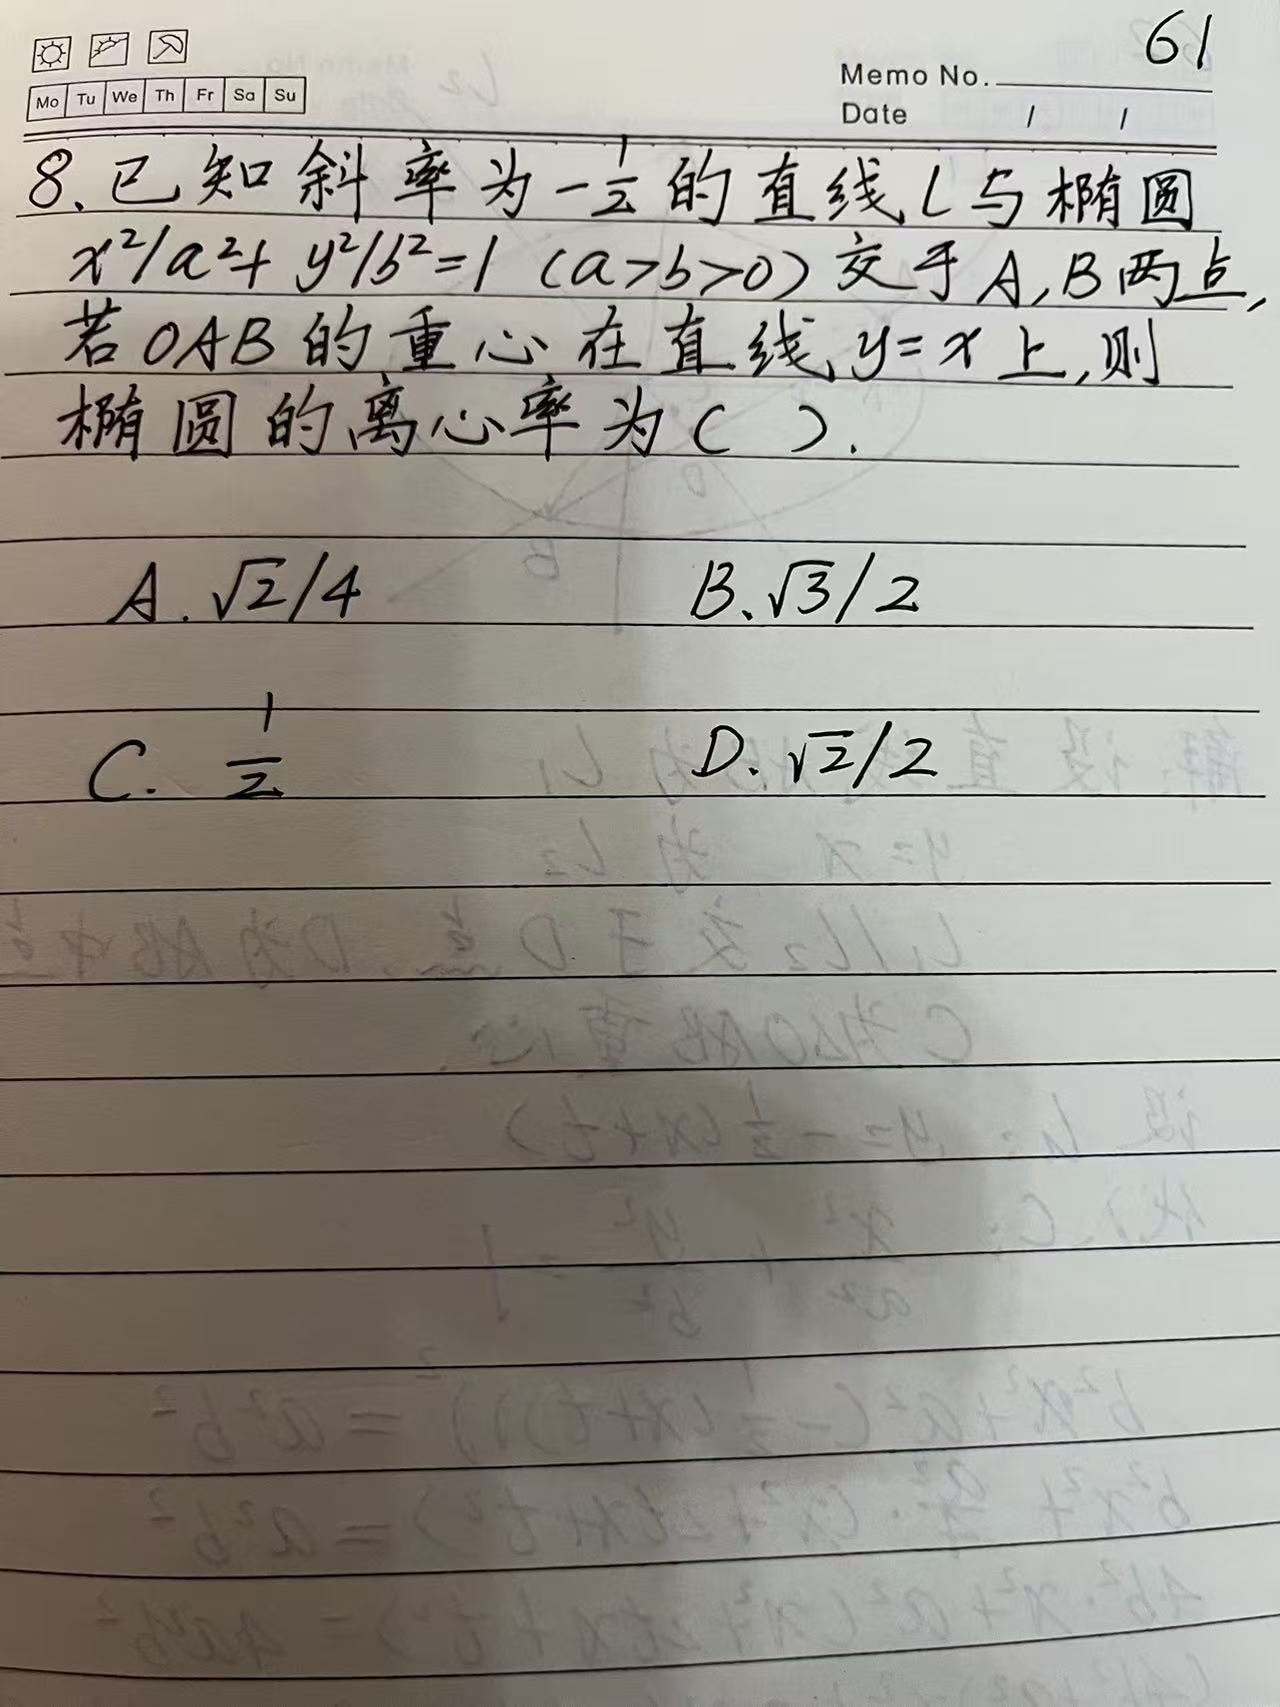 61
Memo No.
Mo Tu We Th Fr Sa Su
Date / /
8、已知斜率为-1/2的直线L与椭圆
x²/a²+ y²/b²=1 (a>b>0)交于A,B两点,
若OAB的重心在直线y=x上,则
椭圆的离心率为( ).
A.√2/4 B、√3/2
C. 1/2 D.√2/2